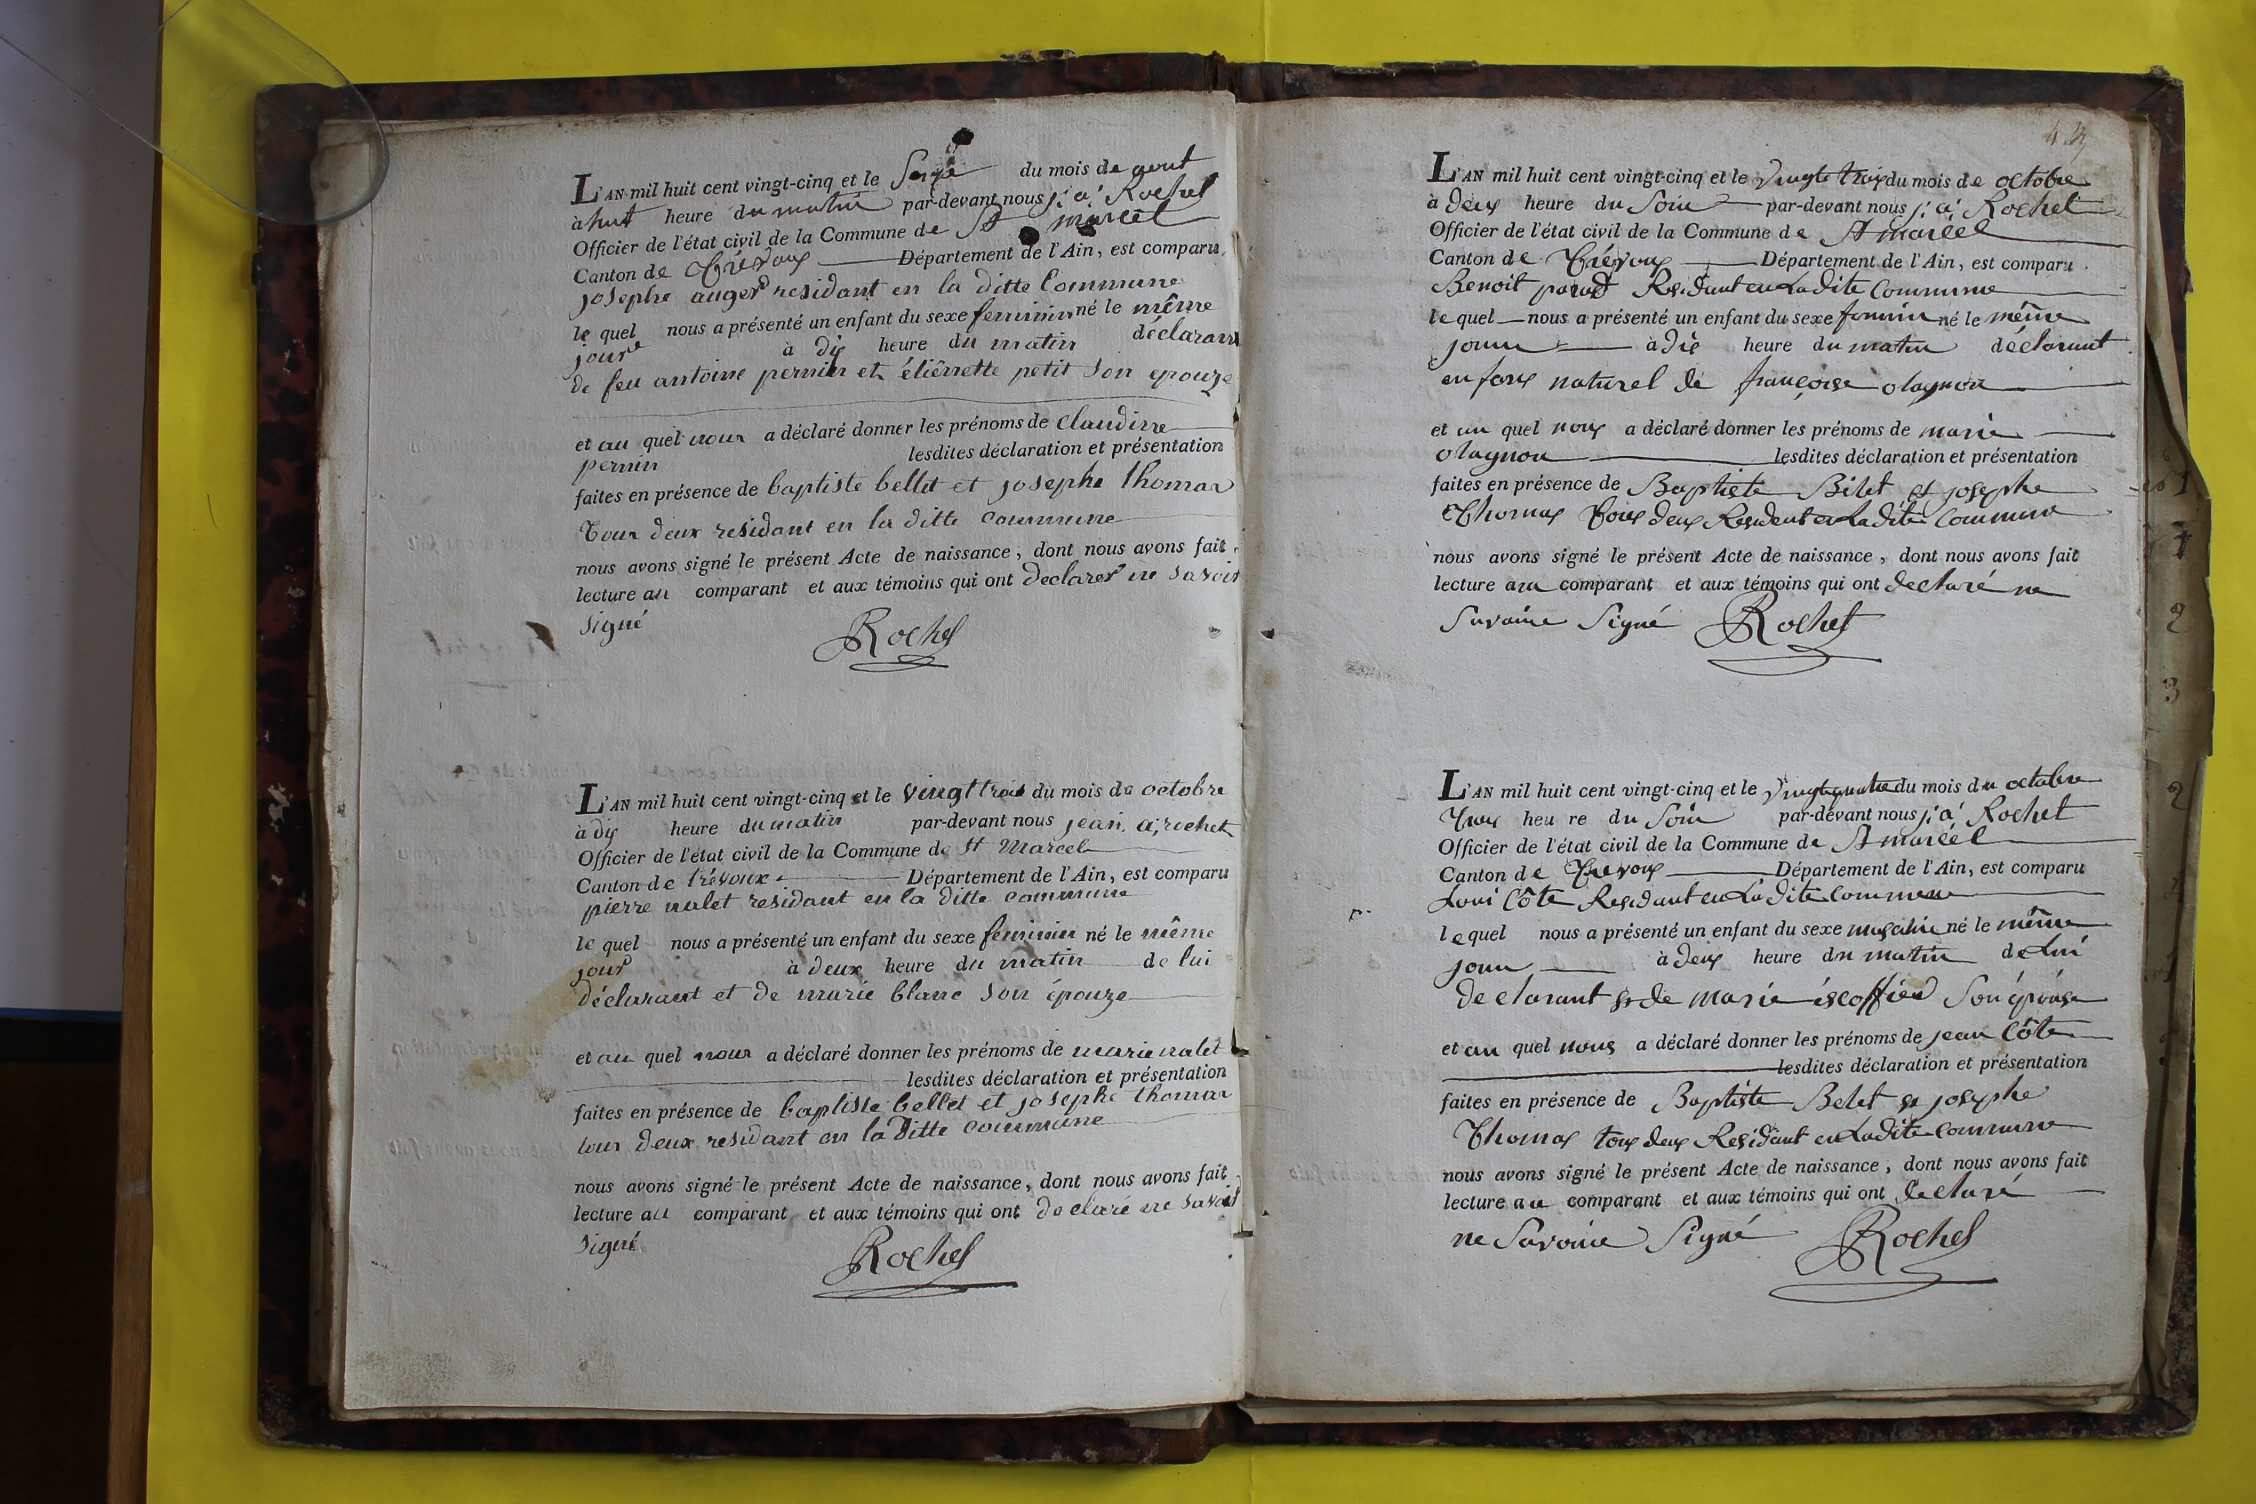 L'AN mil huit cent vingt-cinq et le Seize du mois de aout
à huit heure du matin par-devant nous j; a; Rochet
Officier de l'état civil de la Commune de St marcel
Canton de Trévoux Département de l'Ain, est comparu
josephe auger residant en la ditte Commune
le quel nous a présenté un enfant du sexe feminin né le même
jour à dix heure du matin déclarant
de feu antoine pernin et éliênette petit son epouze
et au quel nour a déclaré donner les prénoms de Claudinne
pernin lesdites déclaration et présentation
faites en présence de baptiste bellet et josephe thomas
tour deux residant en la ditte commune
nous avons signé le présent Acte de naissance, dont nous avons fait
lecture au comparant et aux témoins qui ont declarer ne savoir
signé
Rochet
L'AN mil huit cent vingt-cinq et le vingttrois du mois de octobre
à dix heure du matin par-devant nous jean, a; rochet
Officier de l'état civil de la Commune de St Marcel
Canton de trévoux Département de l'Ain, est comparu
pierre nalet residant en la ditte commune
le quel nous a présenté un enfant du sexe feminin né le même
jour à deux heure du matin de lui
déclarant et de marie blanc son épouze
et au quel nour a déclaré donner les prénoms de marie nalet
lesdites déclaration et présentation
faites en présence de baptiste bellet et josephe thomas
tour deux residant en la ditte commune
nous avons signé le présent Acte de naissance, dont nous avons fait
lecture au comparant et aux témoins qui ont declaré ne savoir
signé
Rochet
L'AN mil huit cent vingt-cinq et le vingte trois du mois de octobre
à deux heure du Soir par-devant nous j; a; Rochet
Officier de l'état civil de la Commune de St marcel
Canton de Trévoux Département de l'Ain, est comparu
Benoit Residant en Ladite Commune
le quel nous a présenté un enfant du sexe né le même
jour à dix heure du matin déclarant
enfans naturel de françoise olagnon
et au quel nous a déclaré donner les prénoms de marie
olagnon lesdites déclaration et présentation
faites en présence de Baptiste Bilet et josephe
Thomas tous deux Resident en Ladite Commune
nous avons signé le présent Acte de naissance, dont nous avons fait
lecture au comparant et aux témoins qui ont declaré ne
Savoire Signé Rochet
L'AN mil huit cent vingt-cinq et le vingtquatre du mois du octobre
trois heu re du Soir par-devant nous j; a; Rochet
Officier de l'état civil de la Commune de St marcel
Canton de Trévoux Département de l'Ain, est comparu
Loui Côte Residant en Ladite Commune
le quel nous a présenté un enfant du sexe né le même
jour à deux heure du matin de Lui
declarant et de marie escoffier Son épouse
et au quel nous a déclaré donner les prénoms de jean Côte
lesdites déclaration et présentation
faites en présence de Baptiste Belet et josephe
Thomas tous deux Residant en Ladite Commune
nous avons signé le présent Acte de naissance, dont nous avons fait
lecture au comparant et aux témoins qui ont declaré
ne Savoire Signé Rochet
1
1
2
3
2